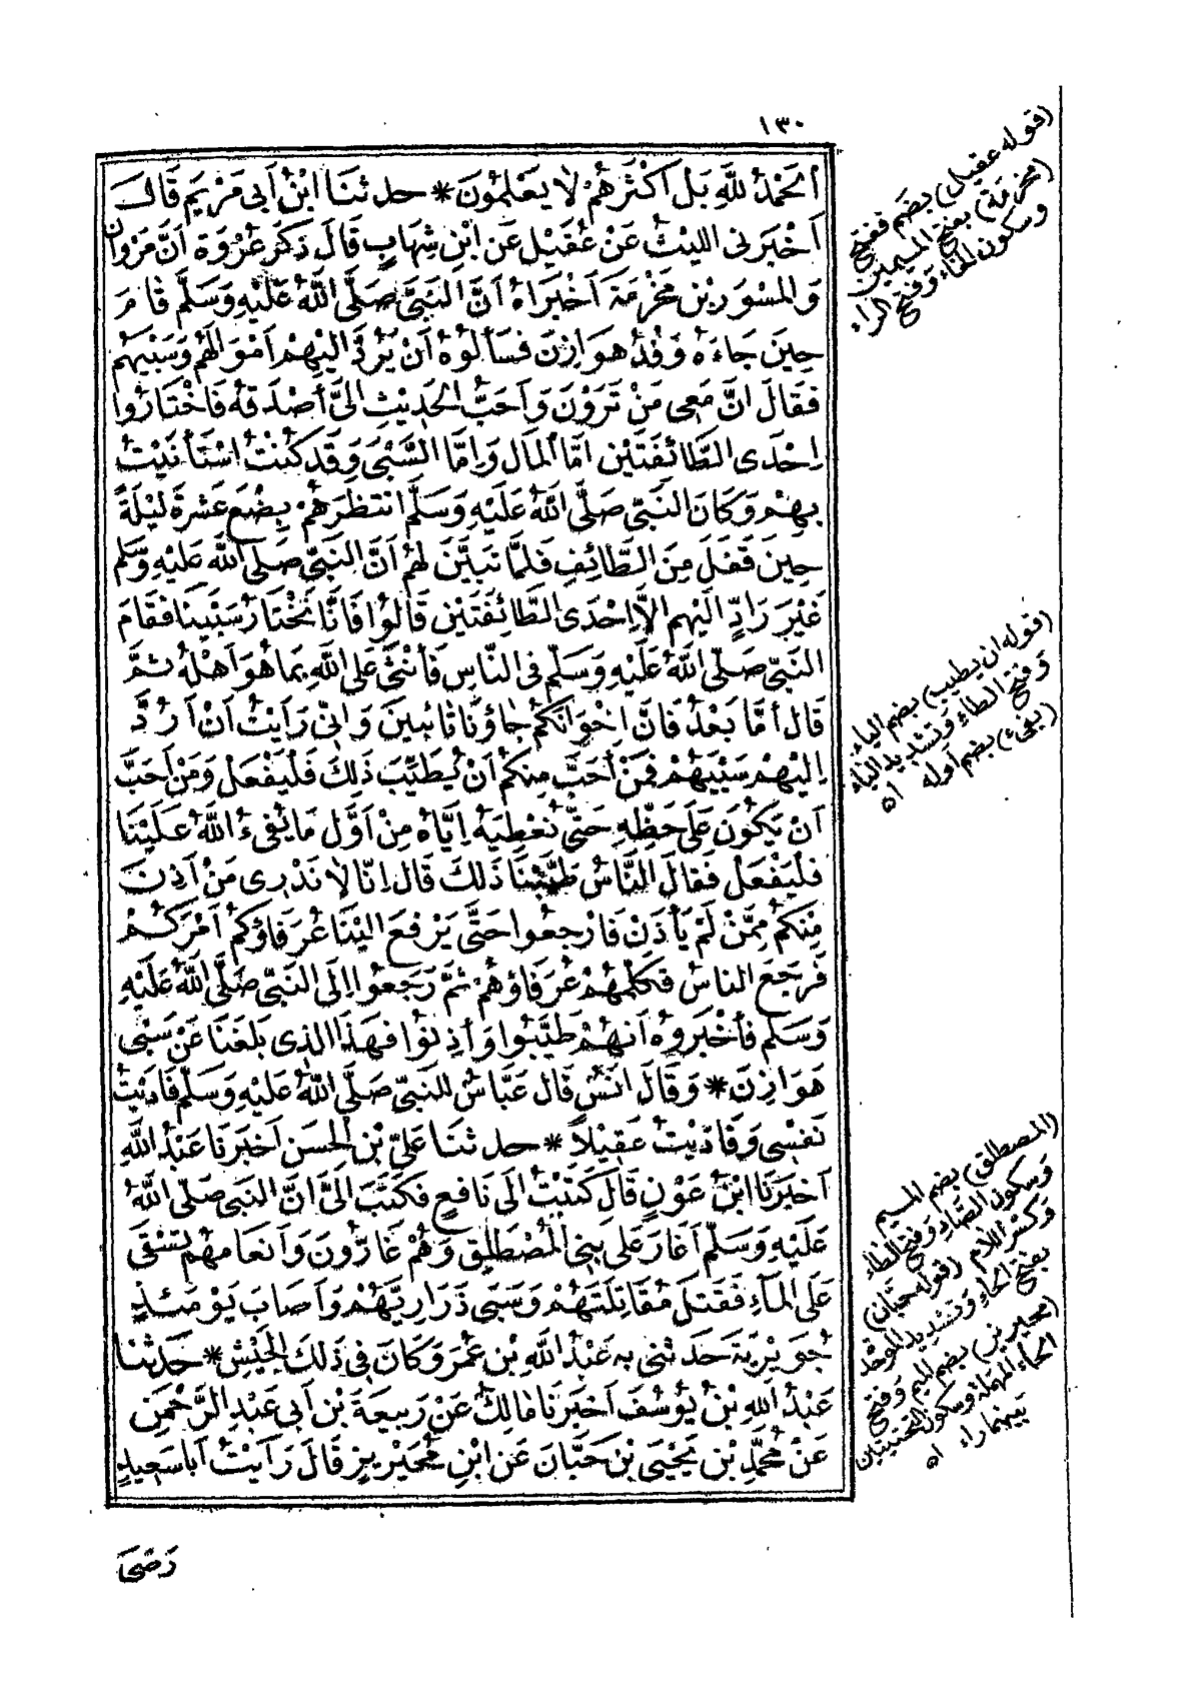 ١٣٠
اَلْحَمْدُ لِلّٰهِ بَلْ اَكْثَرُهُمْ لَا يَعْلَمُونَ * حدثنا ابْنُ اَبِى مَرْيَمَ قَالَ
اَخْبَرَنِى اللَّيْثُ عَنْ عُقَيْلٍ عَنِ ابْنِ شِهَابٍ قَالَ ذَكَرَ عُرْوَةُ اَنَّ مَرْوَانَ
وَالْمِسْوَرَ بْنَ مَخْرَمَةَ اَخْبَرَاهُ اَنَّ النَّبِىَّ صَلَّى اللّٰهُ عَلَيْهِ وَسَلَّمَ قَامَ
حِينَ جَاءَهُ وَفْدُ هَوَازِنَ فَسَأَلُوْهُ اَنْ يَرُدَّ اِلَيْهِمْ اَمْوَالَهُمْ وَسَبْيَهُمْ
فَقَالَ اِنَّ مَعِى مَنْ تَرَوْنَ وَاَحَبُّ الْحَدِيْثِ اِلَىَّ اَصْدَقُهُ فَاخْتَارُوا
اِحْدَى الطَّائِفَتَيْنِ اِمَّا الْمَالَ وَاِمَّا السَّبْىَ وَقَدْ كُنْتُ اسْتَأْنَيْتُ
بِهِمْ وَكَانَ النَّبِىُّ صَلَّى اللّٰهُ عَلَيْهِ وَسَلَّمَ انْتَظَرَهُمْ بِضْعَ عَشْرَةَ لَيْلَةً
حِينَ قَفَلَ مِنَ الطَّائِفِ فَلَمَّا تَبَيَّنَ لَهُمْ اَنَّ النَّبِىَّ صَلَّى اللّٰهُ عَلَيْهِ وَسَلَّمَ
غَيْرُ رَادٍّ اِلَيْهِمْ اِلَّا اِحْدَى الطَّائِفَتَيْنِ قَالُوْا فَاِنَّا نَخْتَارُ سَبْيَنَا فَقَامَ
النَّبِىُّ صَلَّى اللّٰهُ عَلَيْهِ وَسَلَّمَ فِى النَّاسِ فَأَثْنَى عَلَى اللّٰهِ بِمَا هُوَ اَهْلُهُ ثُمَّ
قَالَ اَمَّا بَعْدُ فَاِنَّ اِخْوَانَكُمْ جَاؤُنَا تَائِبِينَ وَاِنِّى رَاَيْتُ اَنْ اَرُدَّ
اِلَيْهِمْ سَبْيَهُمْ فَمَنْ اَحَبَّ مِنْكُمْ اَنْ يُطَيِّبَ ذٰلِكَ فَلْيَفْعَلْ وَمَنْ اَحَبَّ
اَنْ يَكُوْنَ عَلَى حَظِّهِ حَتَّى نُعْطِيَهُ اِيَّاهُ مِنْ اَوَّلِ مَا يُفِىءُ اللّٰهُ عَلَيْنَا
فَلْيَفْعَلْ فَقَالَ النَّاسُ طَيَّبْنَا ذٰلِكَ قَالَ اِنَّا لَا نَدْرِى مَنْ اَذِنَ
مِنْكُمْ مِمَّنْ لَمْ يَأْذَنْ فَارْجِعُوا حَتَّى يَرْفَعَ اِلَيْنَا عُرَفَاؤُكُمْ اَمْرَكُمْ
فَرَجَعَ النَّاسُ فَكَلَّمَهُمْ عُرَفَاؤُهُمْ ثُمَّ رَجَعُوْا اِلَى النَّبِىِّ صَلَّى اللّٰهُ عَلَيْهِ
وَسَلَّمَ فَأَخْبَرُوهُ اَنَّهُمْ طَيَّبُوا وَاَذِنُوْا فَهٰذَا الَّذِى بَلَغَنَا عَنْ سَبْىِ
هَوَازِنَ * وَقَالَ اَنَسٌ قَالَ عَبَّاسٌ لِلنَّبِىِّ صَلَّى اللّٰهُ عَلَيْهِ وَسَلَّمَ فَادَيْتُ
نَفْسِى وَفَادَيْتُ عَقِيْلًا * حدثنا عَلِىُّ بْنُ الْحَسَنِ اَخْبَرَنَا عَبْدُ اللّٰهِ
اَخْبَرَنَا ابْنُ عَوْنٍ قَالَ كَتَبْتُ اِلَى نَافِعٍ فَكَتَبَ اِلَىَّ اَنَّ النَّبِىَّ صَلَّى اللّٰهُ
عَلَيْهِ وَسَلَّمَ اَغَارَ عَلَى بَنِى الْمُصْطَلِقِ وَهُمْ غَارُّونَ وَاَنْعَامُهُمْ تُسْقَى
عَلَى الْمَآءِ فَقَتَلَ مُقَاتِلَتَهُمْ وَسَبَى ذَرَارِيَّهُمْ وَاَصَابَ يَوْمَئِذٍ
جُوَيْرِيَةَ حَدَّثَنِى بِهِ عَبْدُ اللّٰهِ بْنُ عُمَرَ وَكَانَ فِى ذٰلِكَ الْجَيْشِ * حَدَّثنا
عَبْدُ اللّٰهِ بْنُ يُوْسُفَ اَخْبَرَنَا مَالِكٌ عَنْ رَبِيعَةَ بْنِ اَبِى عَبْدِ الرَّحْمٰنِ
عَنْ مُحَمَّدِ بْنِ يَحْيَى بْنِ حَبَّانَ عَنِ ابْنِ مُحَيْرِيزٍ قَالَ رَاَيْتُ اَبَا سَعِيدٍ
(قوله عقيل) بضم ففتح
(مخرمة) بفتح الميمين
وسكون الخاء وفتح الراء
(قوله ان يطيب) بضم الياء
وفتح الطاء وتشديد الياء
(يفىء) بضم اوله اه
(المصطلق) بضم الميم
وسكون الصاد وفتح الطاء
وكسر اللام (قوله حبان)
بفتح الحاء وتشديد الموحدة
(محيريز) بضم الميم وفتح
الحاء المهملة وسكون التحتيتين
بينهما راء اه
رَضِىَ